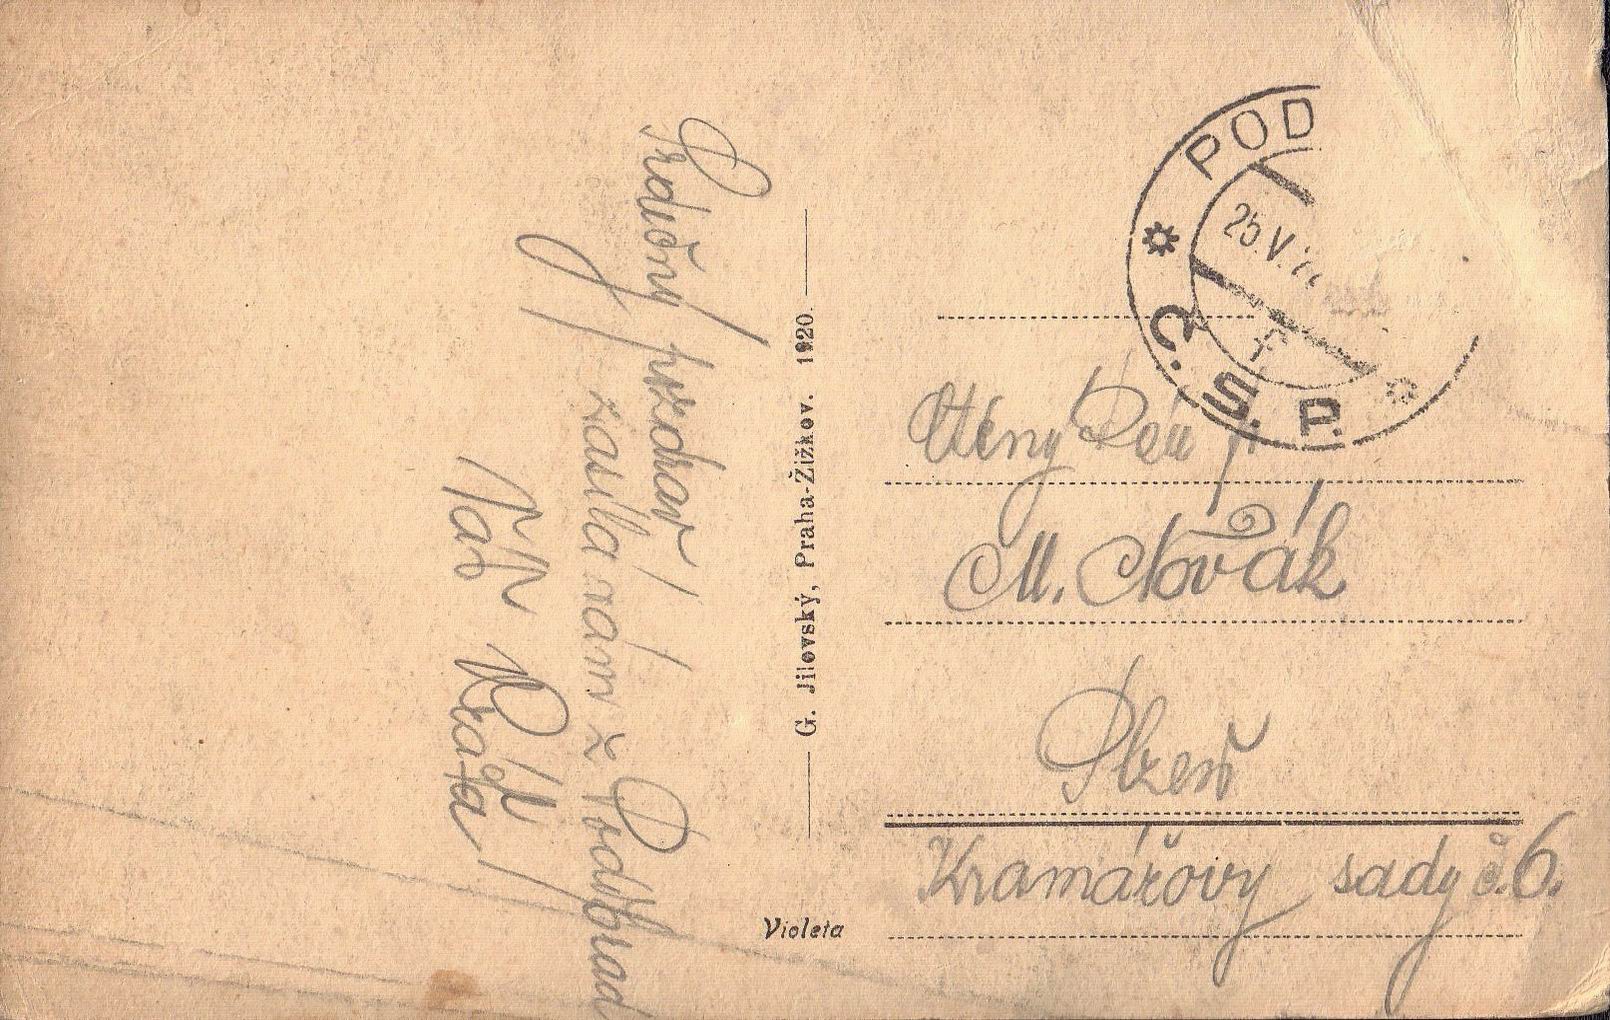 Srdečný pozdrav
zasílá vám z Poděbrad
Váš
G. Jilovský, Praha-Žižkov. 1920.
Violeta
POD
25.V.
Č. S. P.
Ctěný Pan
M. Novák
Plzeň
Kramářovy sady č. 6.